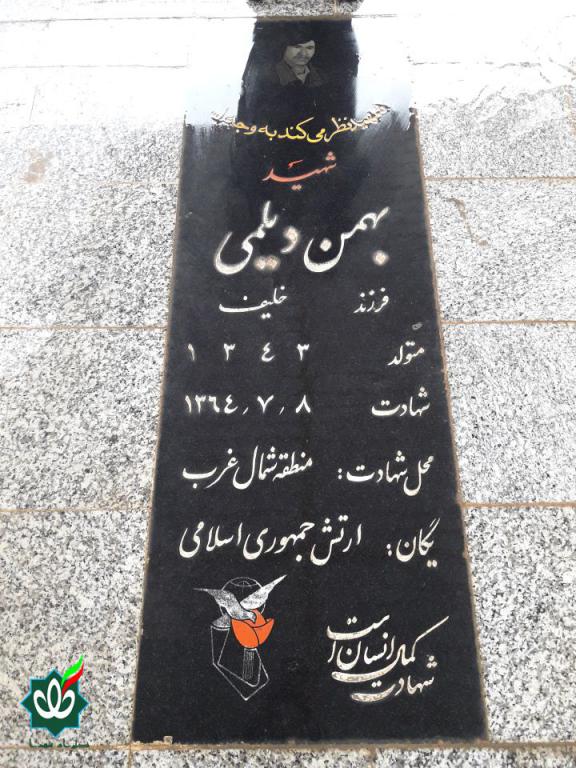 شهید نظر می کند به وجه
شهید
بهمن دیلمی
فرزند خلیف
متولد ۱۳۴۳
شهادت ۱۳۶۴٫۷٫۸
محل شهادت: منطقه شمال غرب
یگان: ارتش جمهوری اسلامی
شهادت کمال انسان است